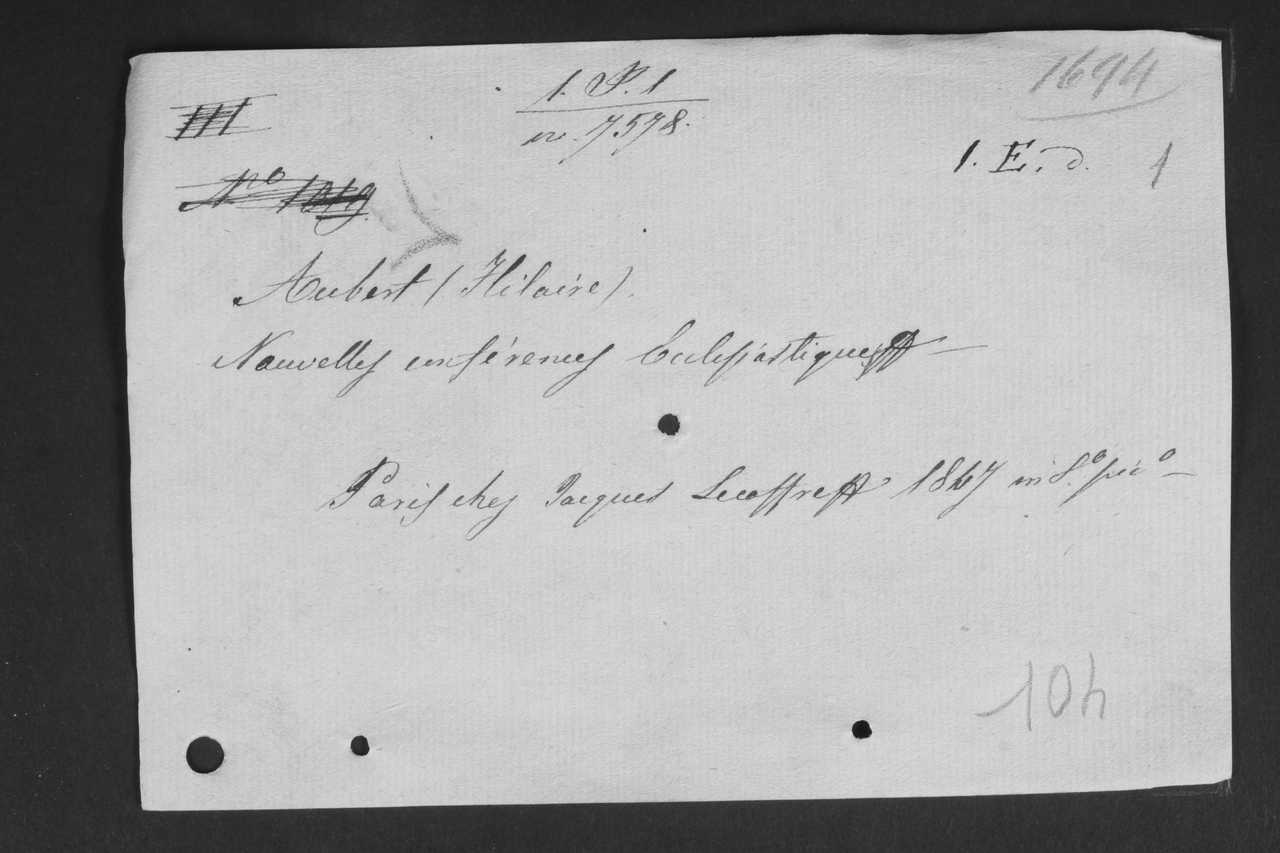 1694
1. P. 1
III
nr. 7578.
1. E. d. 1
No 1049.
Aubert (Hilaire).
Nouvelles conférences Ecclesiastiques
Paris chez Jacques Lecoffre 1847 in 8.o pico
104